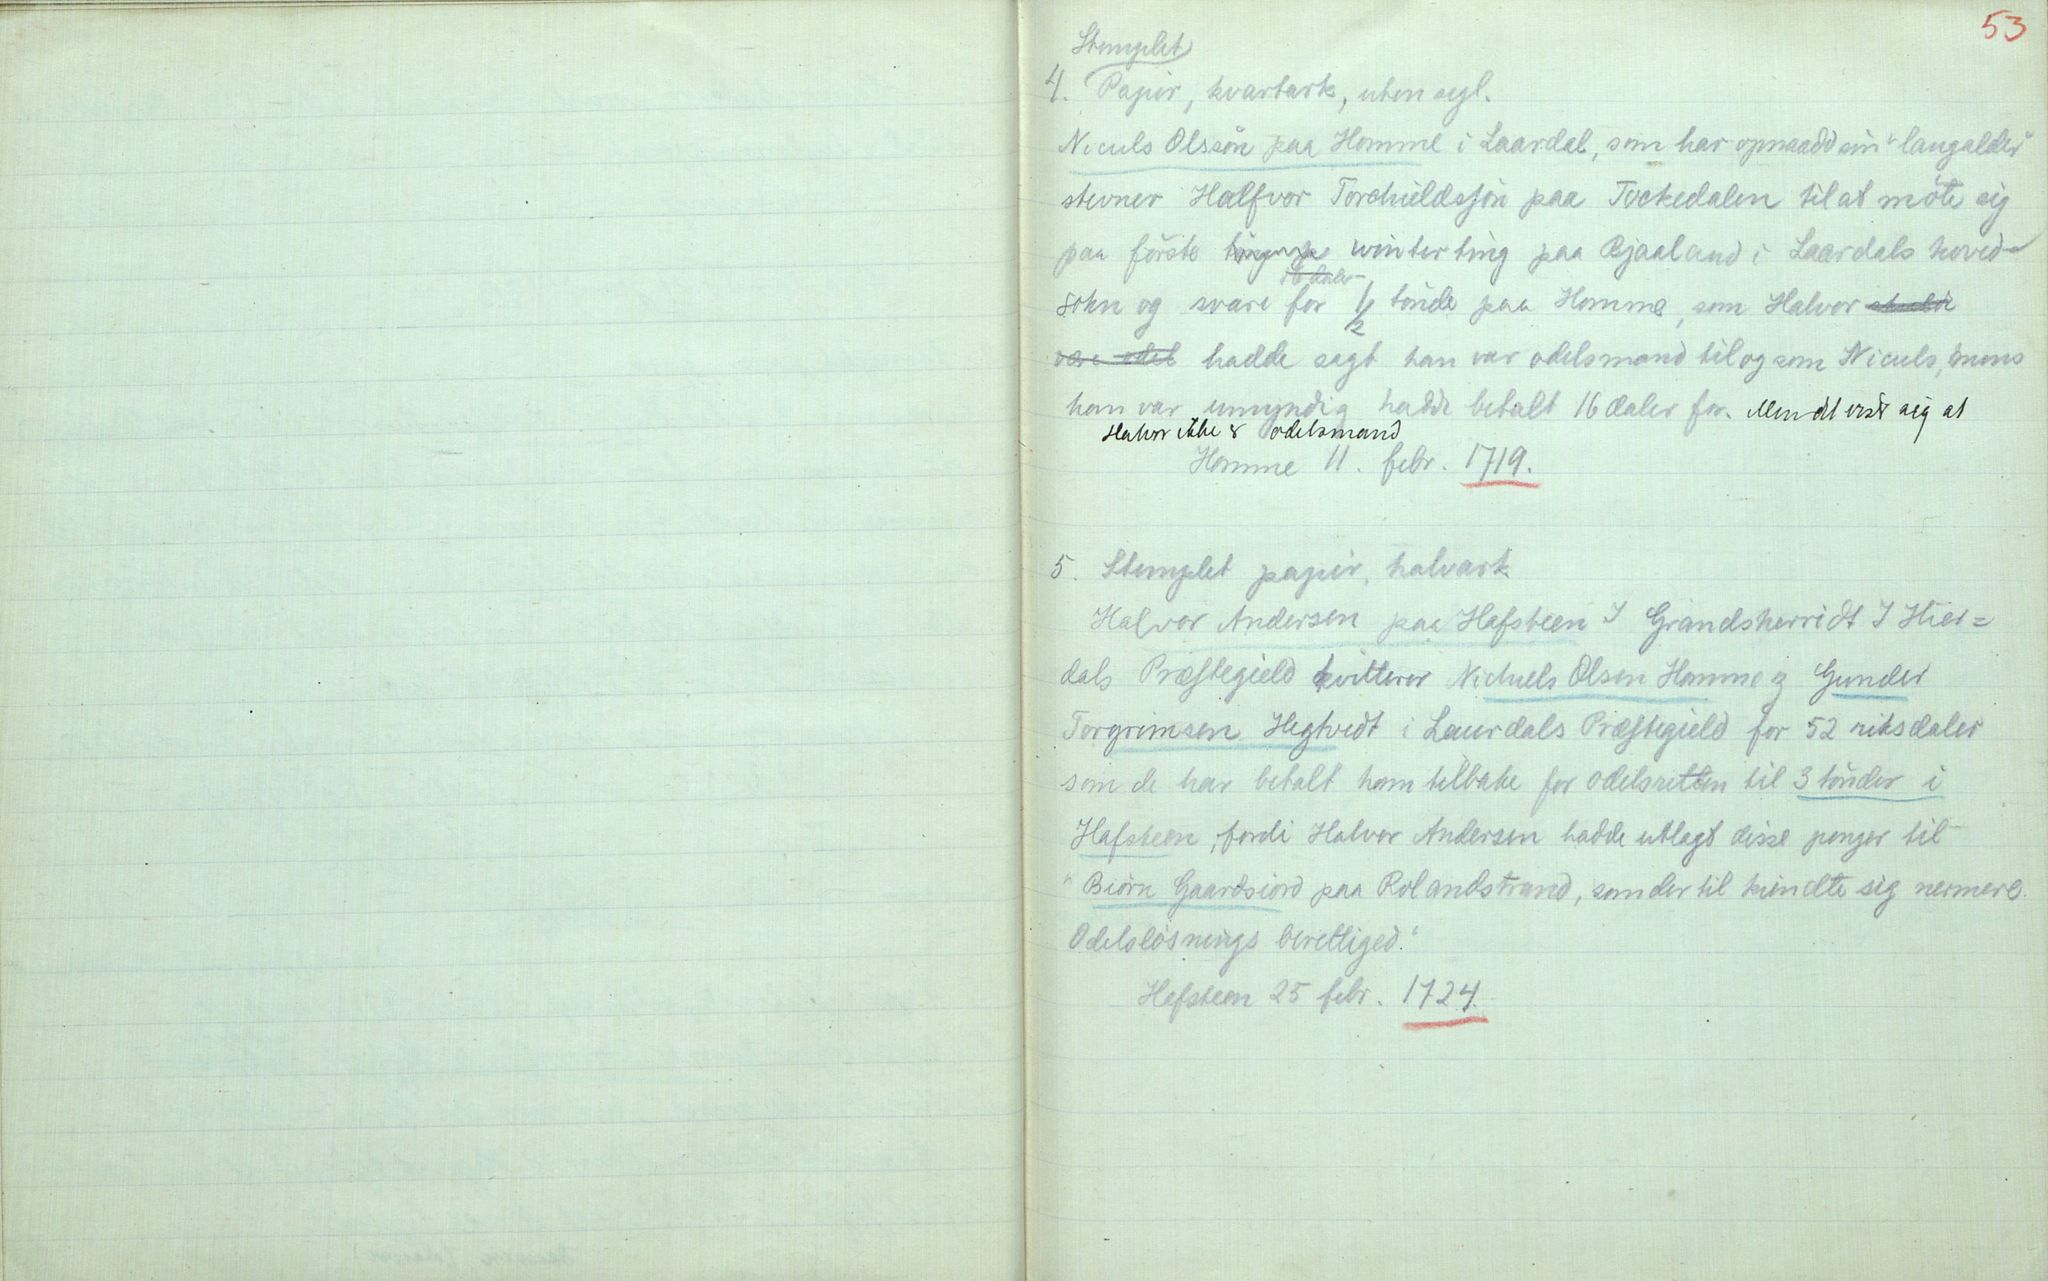 53
Stemplet
4. Papir, kvartark, uten segl.
Niculs Olssön paa Homme i Laardal, som har opnaadd sin "laugalder"
stevner Halfvor Torchieldsjön paa Tockedalen til at möte sig
paa förste winterting paa Bjaaland i Laardals hoved-
16 daler
sokn og svare for 1/2 tönde paa Homme, som Halvor skulde
være odel hadde sagt han var odelsmand til og som Niculs, mens
han var umyndig hadde betalt 16 daler for. Men det viste sig at
Halvor ikke odelsmand
Homme 11. febr. 1719.
5. Stemplet papir, halvark
Halvor Andersen paa Hafsteen I Grandsherridt I Hier=
dals Præstegield kvitterer Nichuels Olsen Homme og Gunder
Torgrimsen Hegtvedt i Laurdals Præstegield for 52 riksdaler
som de har betalt ham tilbake for odelsretten til 3 tönder i
Hafsteen, fordi Halvor Andersen hadde utlagt disse penger til
"Biörn Gaardsiord paa Rolandstrand, som der til kiendte sig nermere
Odelslösnings berettiged."
Hafsteen 25 febr. 1724.